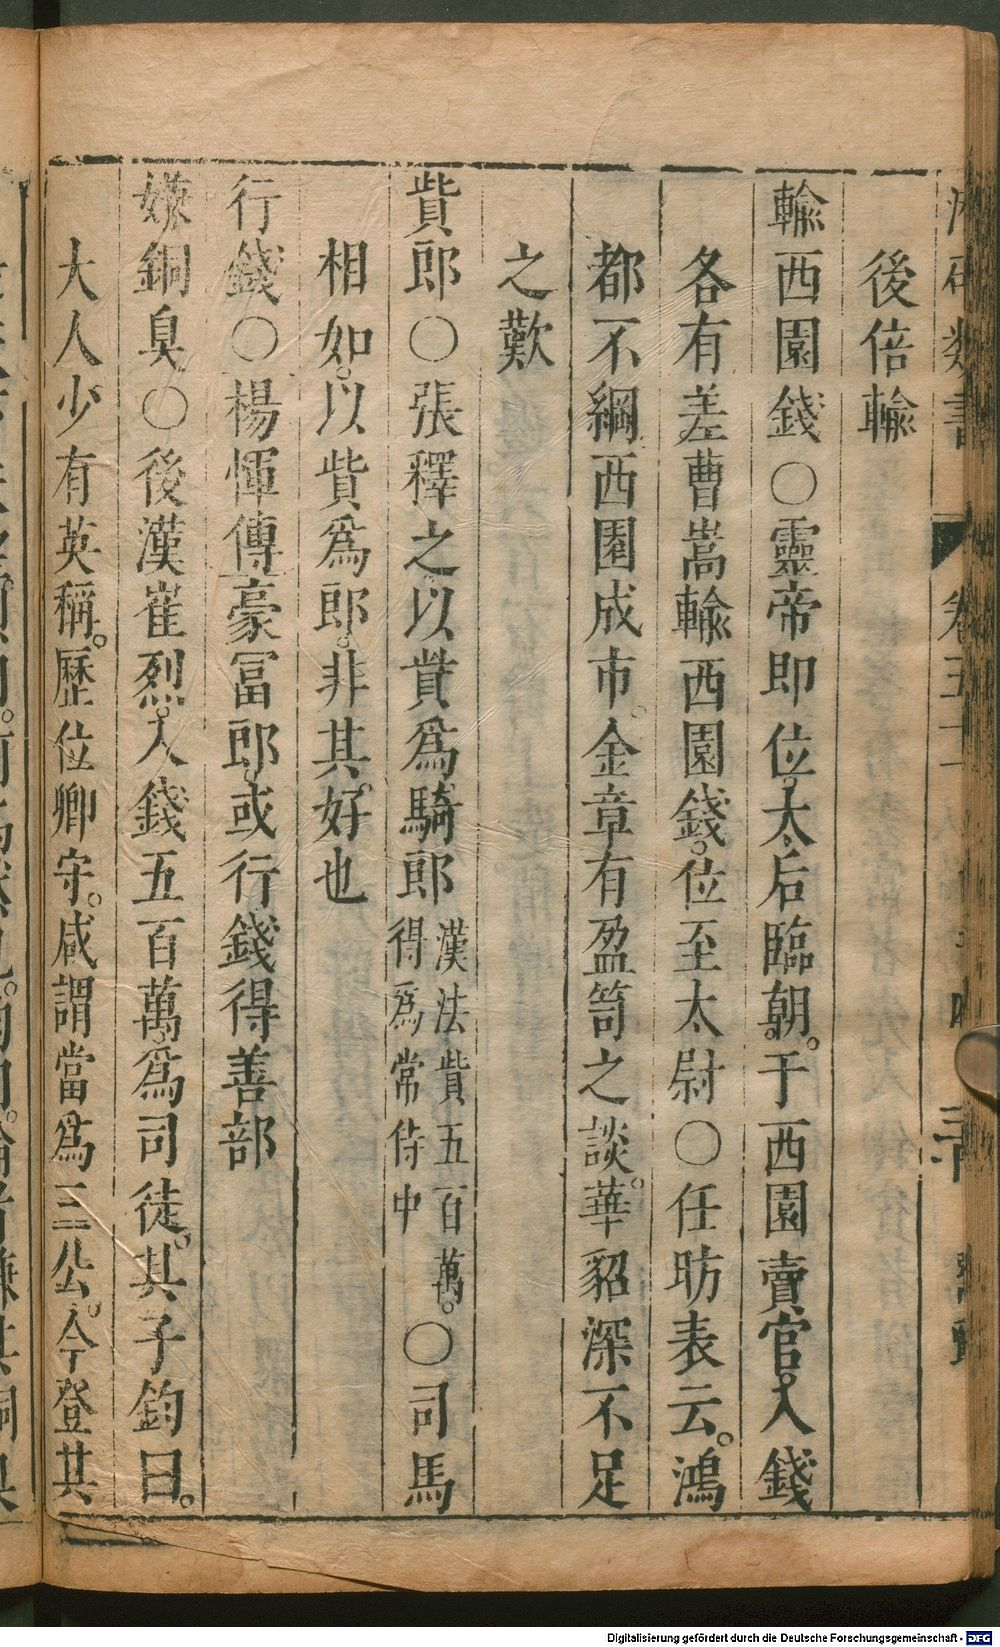 類書
後倍輸
輸西園錢○靈帝即位。太后臨朝。于西園賣官。入錢
各有差曹嵩輸西園錢。位至太尉○任昉表云。鴻
都不綱西園成市。金章有盈笥之談。華貂深不足
之歎
貲郎○張釋之以貲爲騎郎
漢法貲五百萬。
得爲常侍中
○司馬
相如。以貲爲郎。非其好也
行錢○楊惲傳豪冨郎。或行錢得善部
嫌銅臭○後漢崔烈。入錢五百萬。爲司徒。其子鈞曰。
大人少有英稱。歷位卿守。咸謂當爲三公。今登其
Digitalisierung gefördert durch die Deutsche Forschungsgemeinschaft - DFG